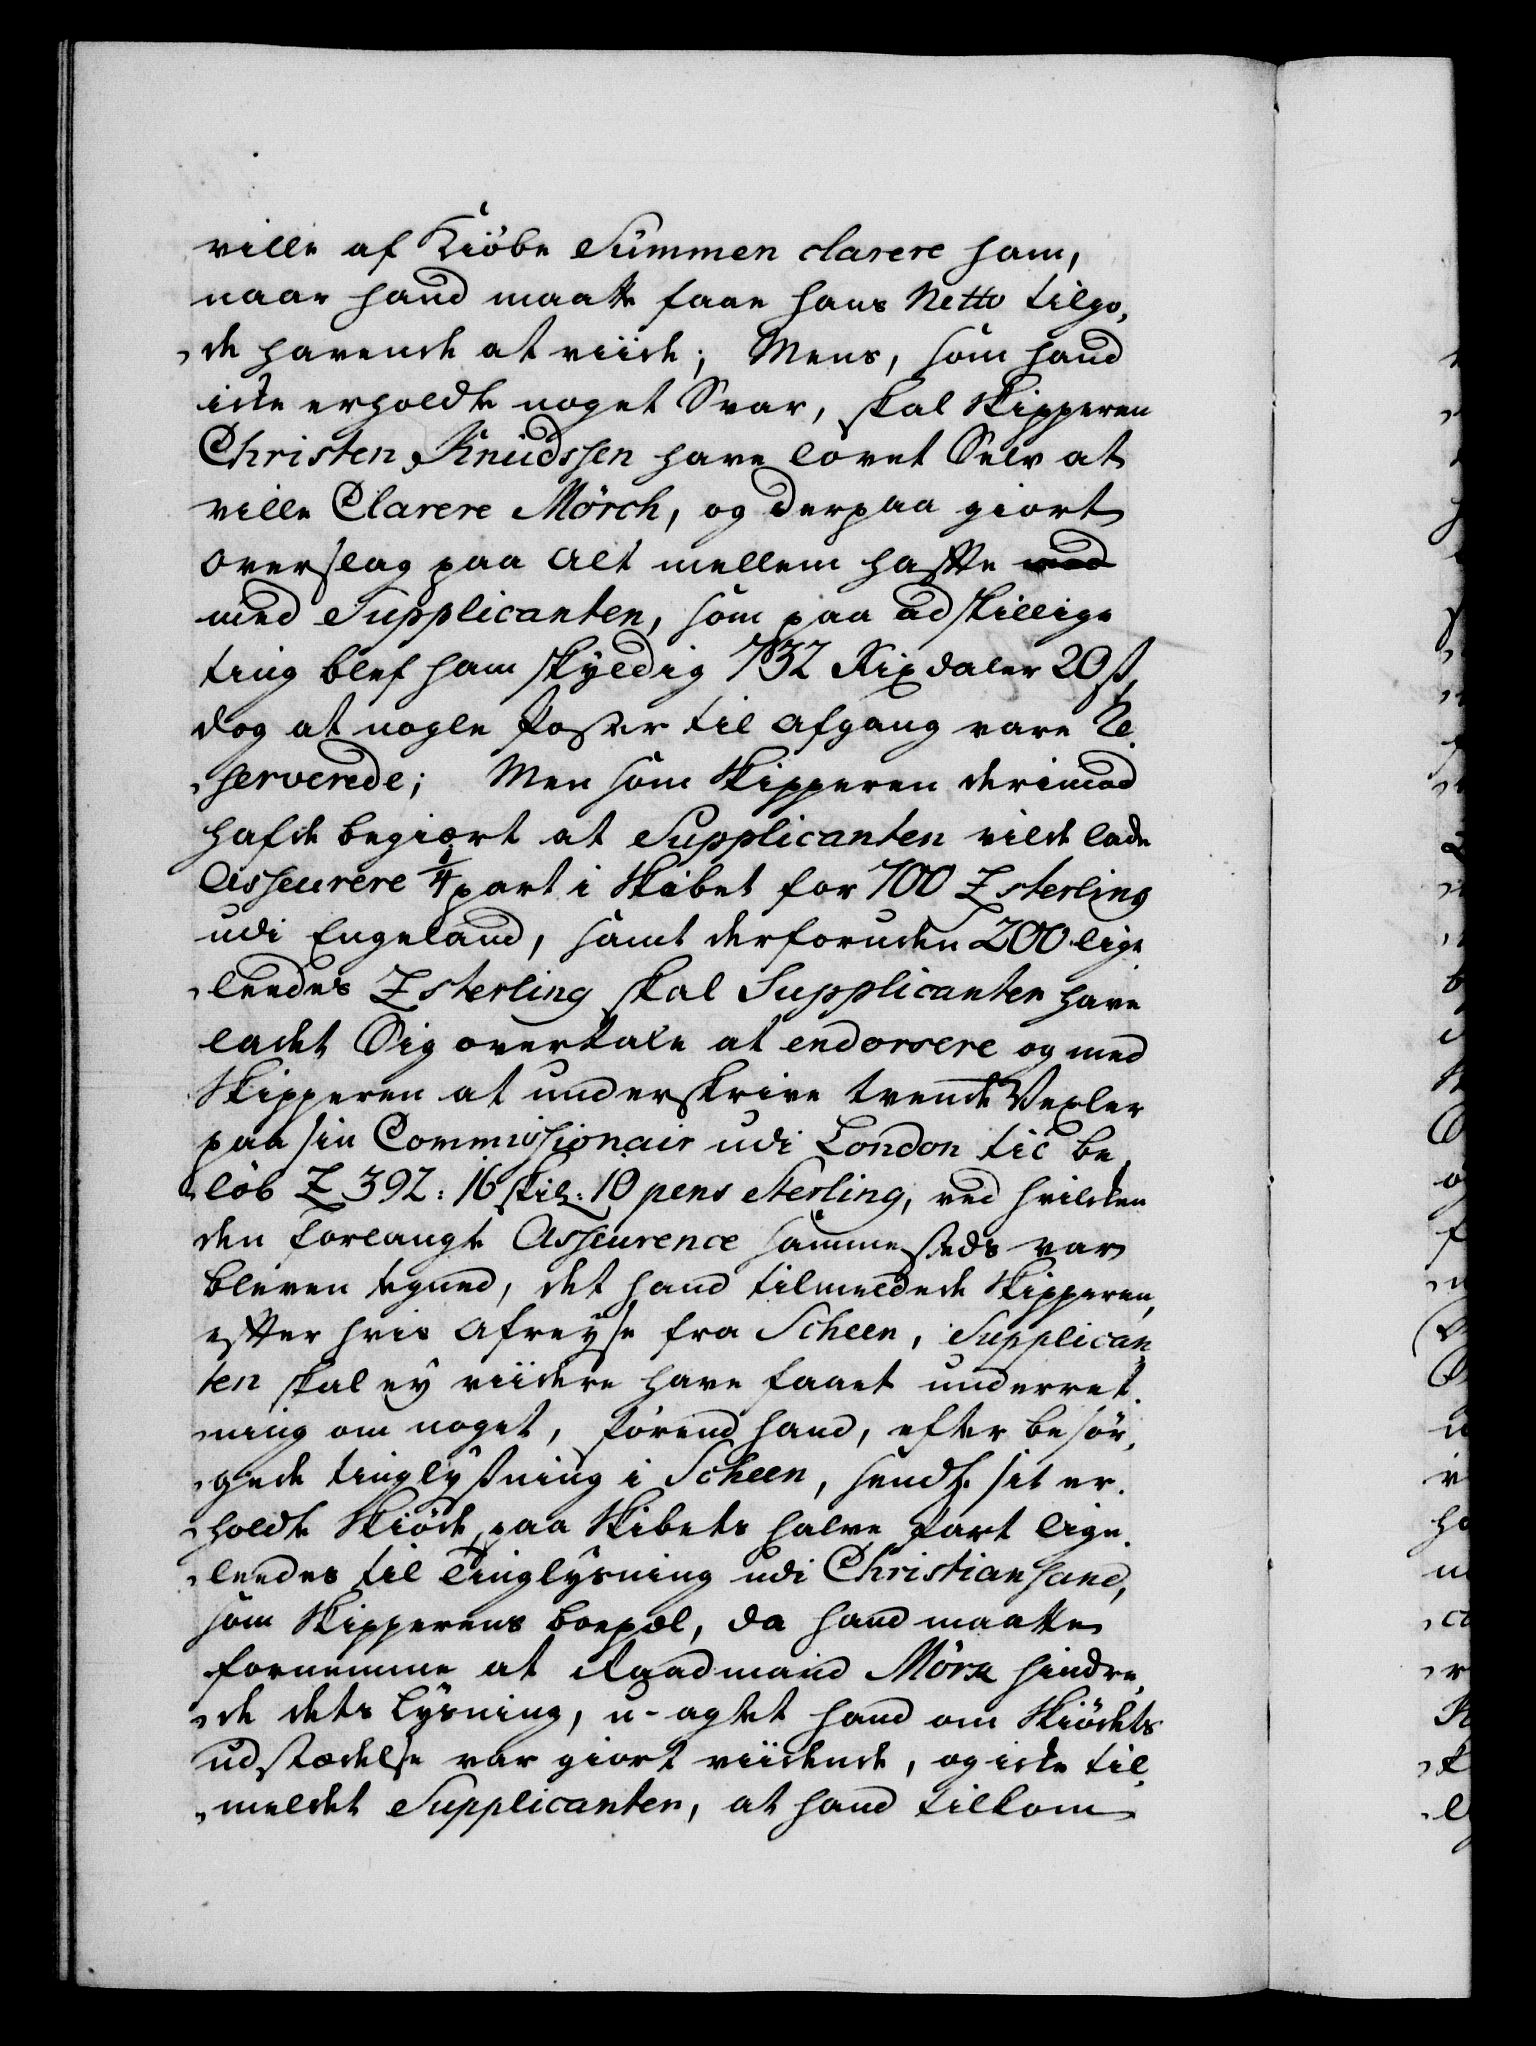 ville af Kiöbe Summen clarere ham,
naar hand maatte faae hans Netto tilgo,
,de havende at viide; Mens, som hand
icke erholdte noget Svar, skal Skipperen
Christen Knudssen have lovet Selv at
ville Clarere Mörch, og derpaa giort
overslag paa alt mellem hafte
med Supplicanten, som paa adskillige
ting blef ham skyldig 732 Rixdaler 20 ß,
dog at nogle Poster til afgang vare Re,
,serverede; Men som Skipperen derimod
hafde begiært at Supplicanten vilde lade
Asseurere 1/4 part i Skibet for 700 £ sterling
udi Engeland, samt derforuden 200 lige
,leedes £ sterling skal Supplicanten have
ladet Sig overtale at endorsere og med
Skipperen at underskrive tvende Vexler
paa sin Commissionair udi London til be,
,löb £ 392: 16 skil: 10 pens Sterling, ved hvilcken
den forlangte Asseurence sammesteds var
bleven tegned, det hand tilmeldede Skipperen,
efter hvis afreyse fra Scheen, Supplican
ten skal ey viidere have faaet underret,
,ning om noget, förend hand, efter besör,
,gede tinglysning i Scheen, sendte sit er,
,holdte Skiöde paa Skibets halve Part lige,
,leedes til Tinglysning udi Christiansand,
som Skipperens boepæl, da hand maatte
fornemme at Raadmand Mörch hindre,
,de dets lysning, u-agtet hand om Skiödets
udstædelse var giort viidende, og icke til,
,meldet Supplicanten, at hand tilkom